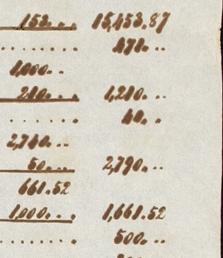 153... 15,453.87
........ 
1,000...
210... 1,210...
........
2,740...
50... 2,790...
661.52
1,000... 1,661.52
........ 500...